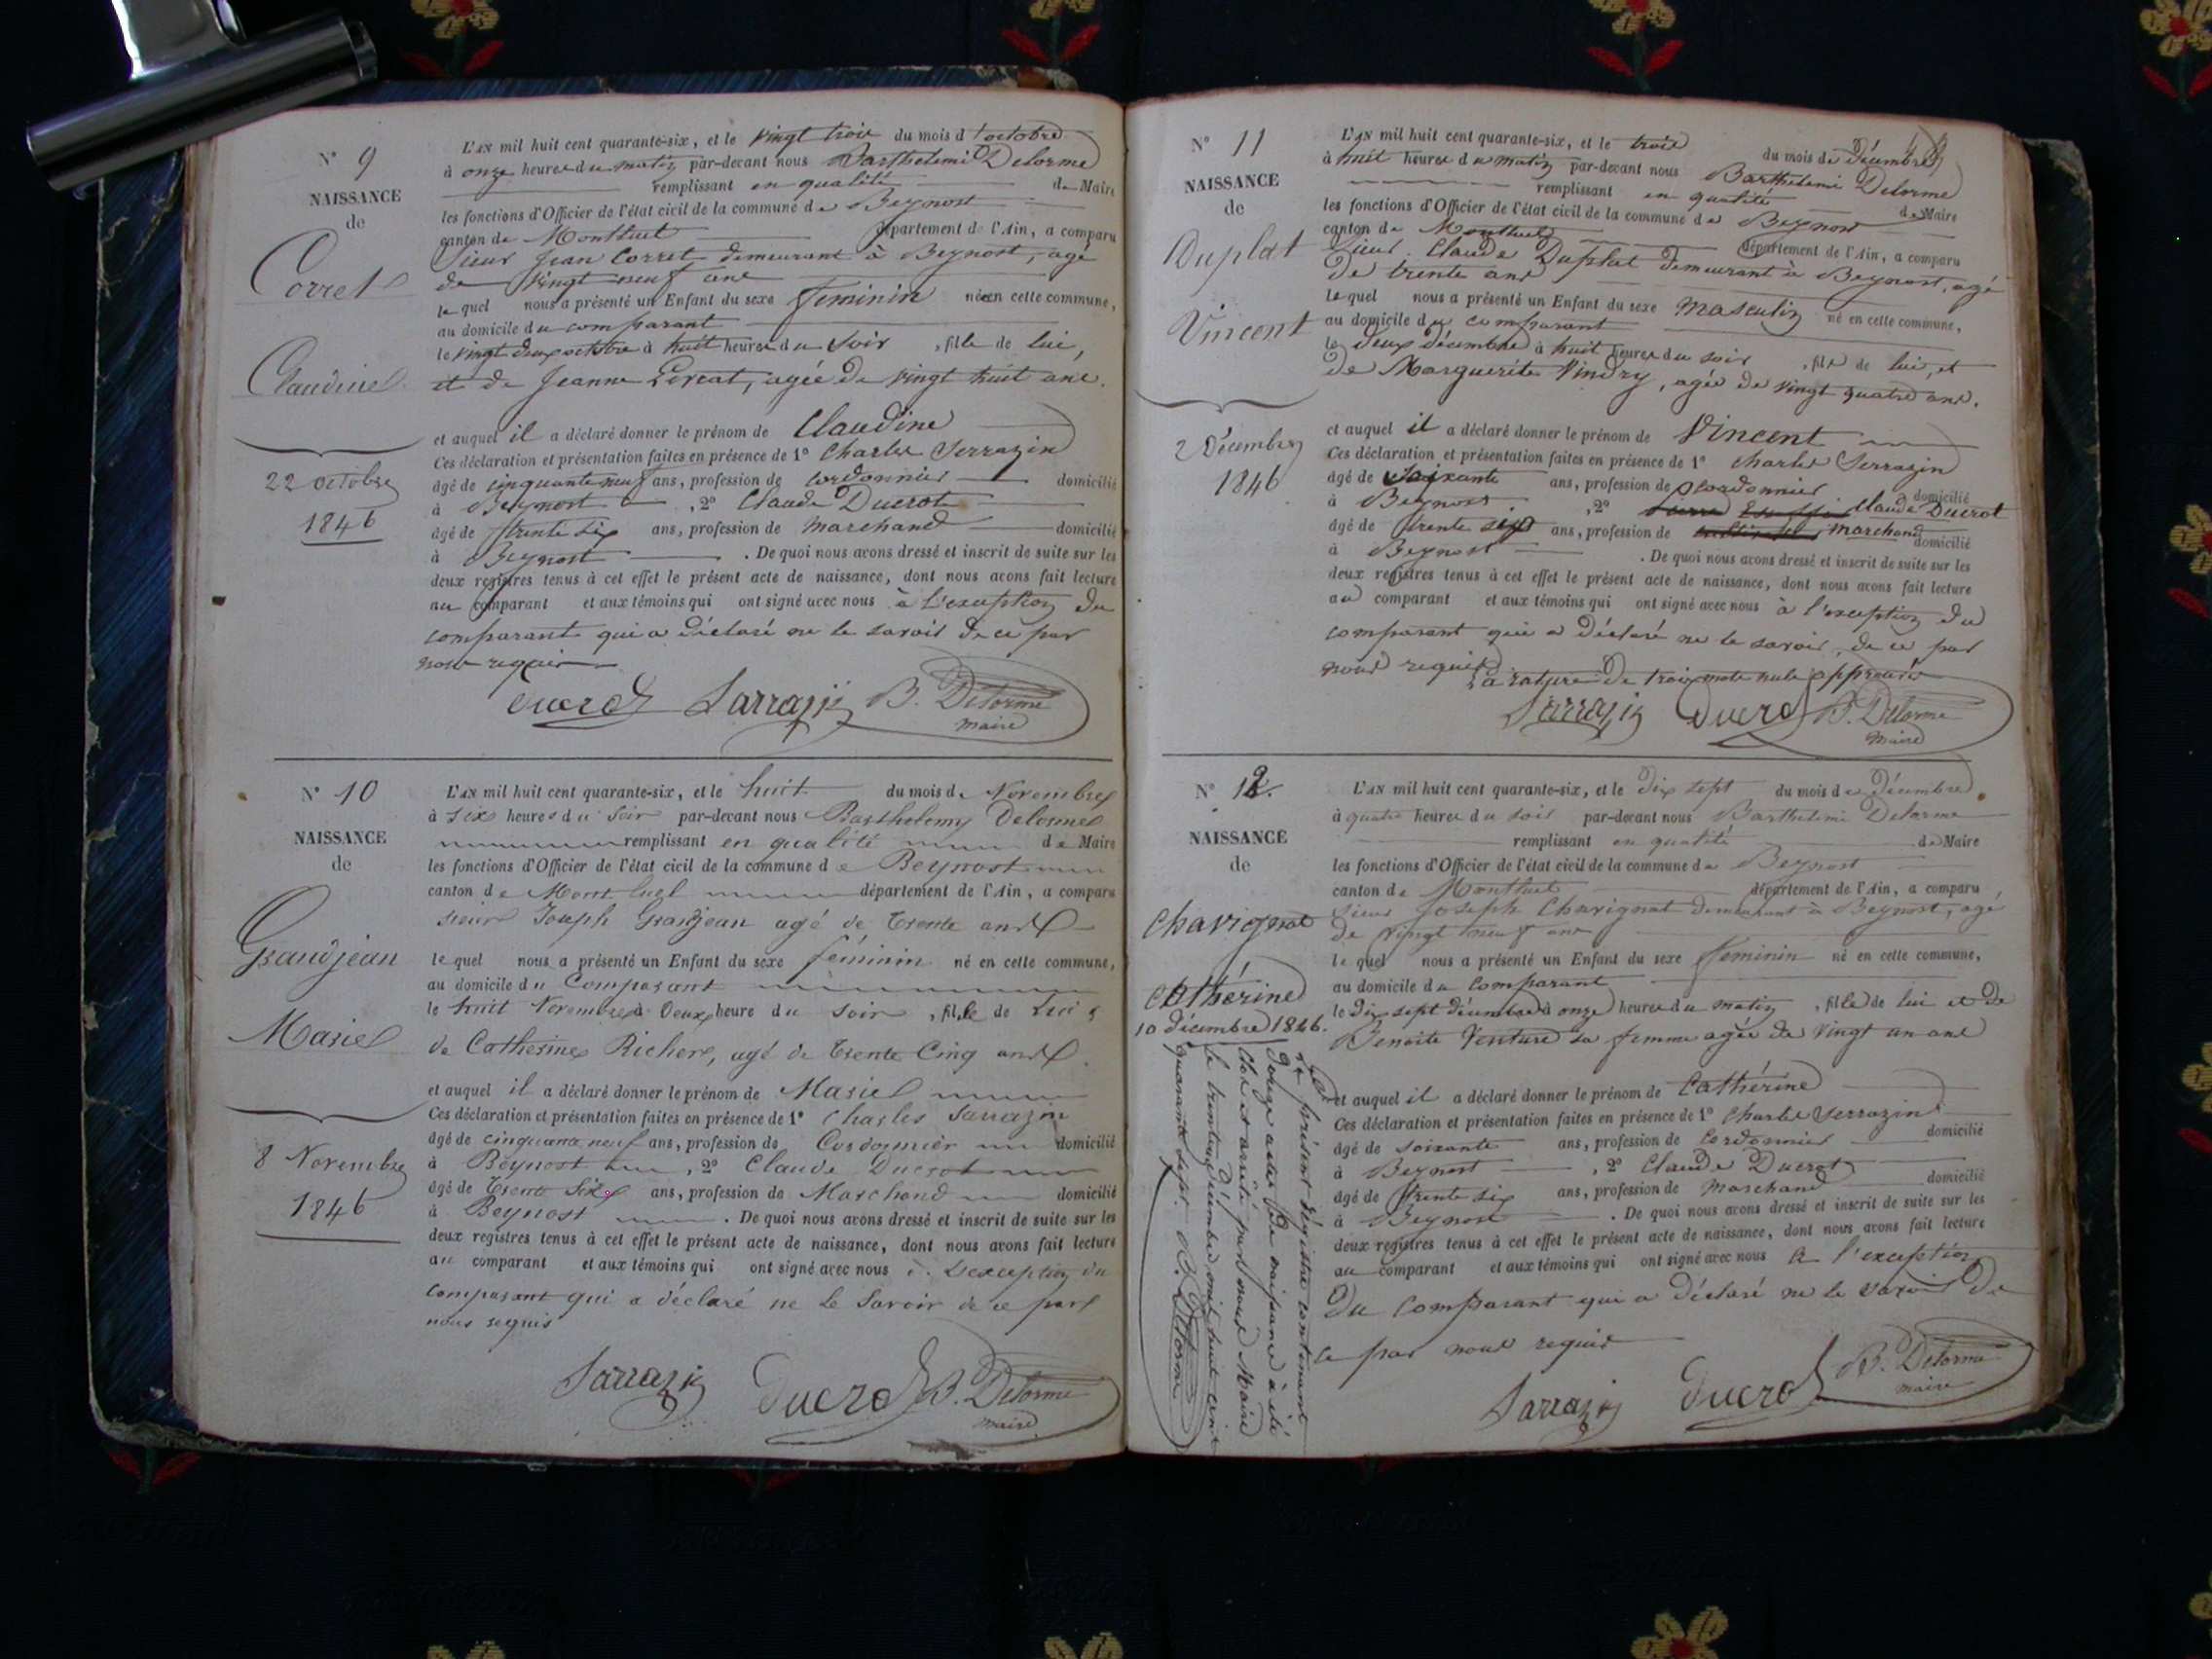 N° 9
NAISSANCE
de
Corret
Claudine
22 octobre
1846
L'AN mil huit cent quarante-six, et le vingt trois du mois d'octobre
à onze heures du matin par-devant nous Barthelemi Delorme
remplissant en qualité de Maire
les fonctions d'Officier de l'état civil de la commune de Beynost
canton de Montluel département de l'Ain, a comparu
Sieur Jean Corret demeurant à Beynost, agé
de vingt neuf ans
le quel nous a présenté un Enfant du sexe feminin né en cette commune,
au domicile du comparant
le vingt deux octobre à huit heures du soir , fille de lui,
et de Jeanne , agée de vingt huit ans.
et auquel il a déclaré donner le prénom de Claudine
Ces déclaration et présentation faites en présence de 1° Charles Serrazin
âgé de cinquante neuf ans, profession de cordonnier domicilié
à Beynost , 2° Claude Ducrot
âgé de trente six ans, profession de marchand domicilié
à Beynost . De quoi nous avons dressé et inscrit de suite sur les
deux registres tenus à cet effet le présent acte de naissance, dont nous avons fait lecture
au comparant et aux témoins qui ont signé avec nous à l'exception du
comparant qui a déclaré ne le savoir de ce par
nous requis
Ducrot Sarrazin B. Delorme
maire
N° 10
NAISSANCE
de
Grandjean
Marie
8 Novembre
1846
L'AN mil huit cent quarante-six, et le huit du mois de Novembre
à six heures du Soir par-devant nous Barthelemy Delorme
remplissant en qualité de Maire
les fonctions d'Officier de l'état civil de la commune de Beynost
canton de Montluel département de l'Ain, a comparu
sieur Joseph Grandjean agé de trente ans
le quel nous a présenté un Enfant du sexe féminin né en cette commune,
au domicile du Comparant
le huit Novembre à Deux heure du Soir , fille de lui &
de Catherine Richere, agé de trente Cinq ans
et auquel il a déclaré donner le prénom de Marie
Ces déclaration et présentation faites en présence de 1° Charles Sarrazin
âgé de cinquante neuf ans, profession de Cordonnier domicilié
à Beynost , 2° Claude Ducrot
âgé de trente Six ans, profession de Marchand domicilié
à Beynost . De quoi nous avons dressé et inscrit de suite sur les
deux registres tenus à cet effet le présent acte de naissance, dont nous avons fait lecture
au comparant et aux témoins qui ont signé avec nous à L'exception du
Comparant qui a déclaré ne Le Savoir de ce part
nous requis
Sarrazin Ducrot B. Delorme
maire
N° 11
NAISSANCE
de
Duplat
Vincent
2 Décembre
1846
L'AN mil huit cent quarante-six, et le trois du mois de Décembre
à huit heures du matin par-devant nous Barthelemi Delorme
remplissant en qualité de Maire
les fonctions d'Officier de l'état civil de la commune de Beynost
canton de Montluel département de l'Ain, a comparu
Sieur Claude Duplat demeurant à Beynost, agé
de trente ans
le quel nous a présenté un Enfant du sexe masculin né en cette commune,
au domicile du comparant
le deux décembre à huit heures du soir , fils de lui, et
de Marguerite Vindry, agée de vingt quatre ans.
et auquel il a déclaré donner le prénom de Vincent
Ces déclaration et présentation faites en présence de 1° Charles Serrazin
âgé de Soixante ans, profession de Cordonnier domicilié
à Beynost , 2° Claude Ducrot
âgé de trente six ans, profession de marchand domicilié
à Beynost . De quoi nous avons dressé et inscrit de suite sur les
deux registres tenus à cet effet le présent acte de naissance, dont nous avons fait lecture
au comparant et aux témoins qui ont signé avec nous à l'exception du
comparant qui a déclaré ne le savoir, de ce par
nous requis
La rature de trois mots nuls approuvé
Sarrazin Ducrot B. Delorme
Maire
N° 12.
NAISSANCE
de
Chavignat
Cathérine
10 décembre 1846.
L'AN mil huit cent quarante-six, et le Dix sept du mois de décembre
à quatre heures du soir par-devant nous Barthelemi Delorme
remplissant en qualité de Maire
les fonctions d'Officier de l'état civil de la commune de Beynost
canton de Montluel département de l'Ain, a comparu
Sieur Joseph Chavignat demeurant à Beynost, agé
de vingt neuf ans
le quel nous a présenté un Enfant du sexe feminin né en cette commune,
au domicile du comparant
le dix sept décembre à onze heures du matin , fille de lui et de
Benoite Venture sa femme agée de vingt un ans
et auquel il a déclaré donner le prénom de Cathérine
Ces déclaration et présentation faites en présence de 1° Charles Serrazin
âgé de soixante ans, profession de cordonnier domicilié
à Beynost , 2° Claude Ducrot
âgé de trente six ans, profession de marchand domicilié
à Beynost . De quoi nous avons dressé et inscrit de suite sur les
deux registres tenus à cet effet le présent acte de naissance, dont nous avons fait lecture
au comparant et aux témoins qui ont signé avec nous à l'exception
du comparant qui a déclaré ne le savoir de
ce par nous requis
Sarrazin Ducrot B. Delorme
maire
Le présent régistre contenant
Douze actes de naissance à été
clos et arrêté par nous Maire
le trente un décembre mil huit cent
quarante sept. B. Delorme